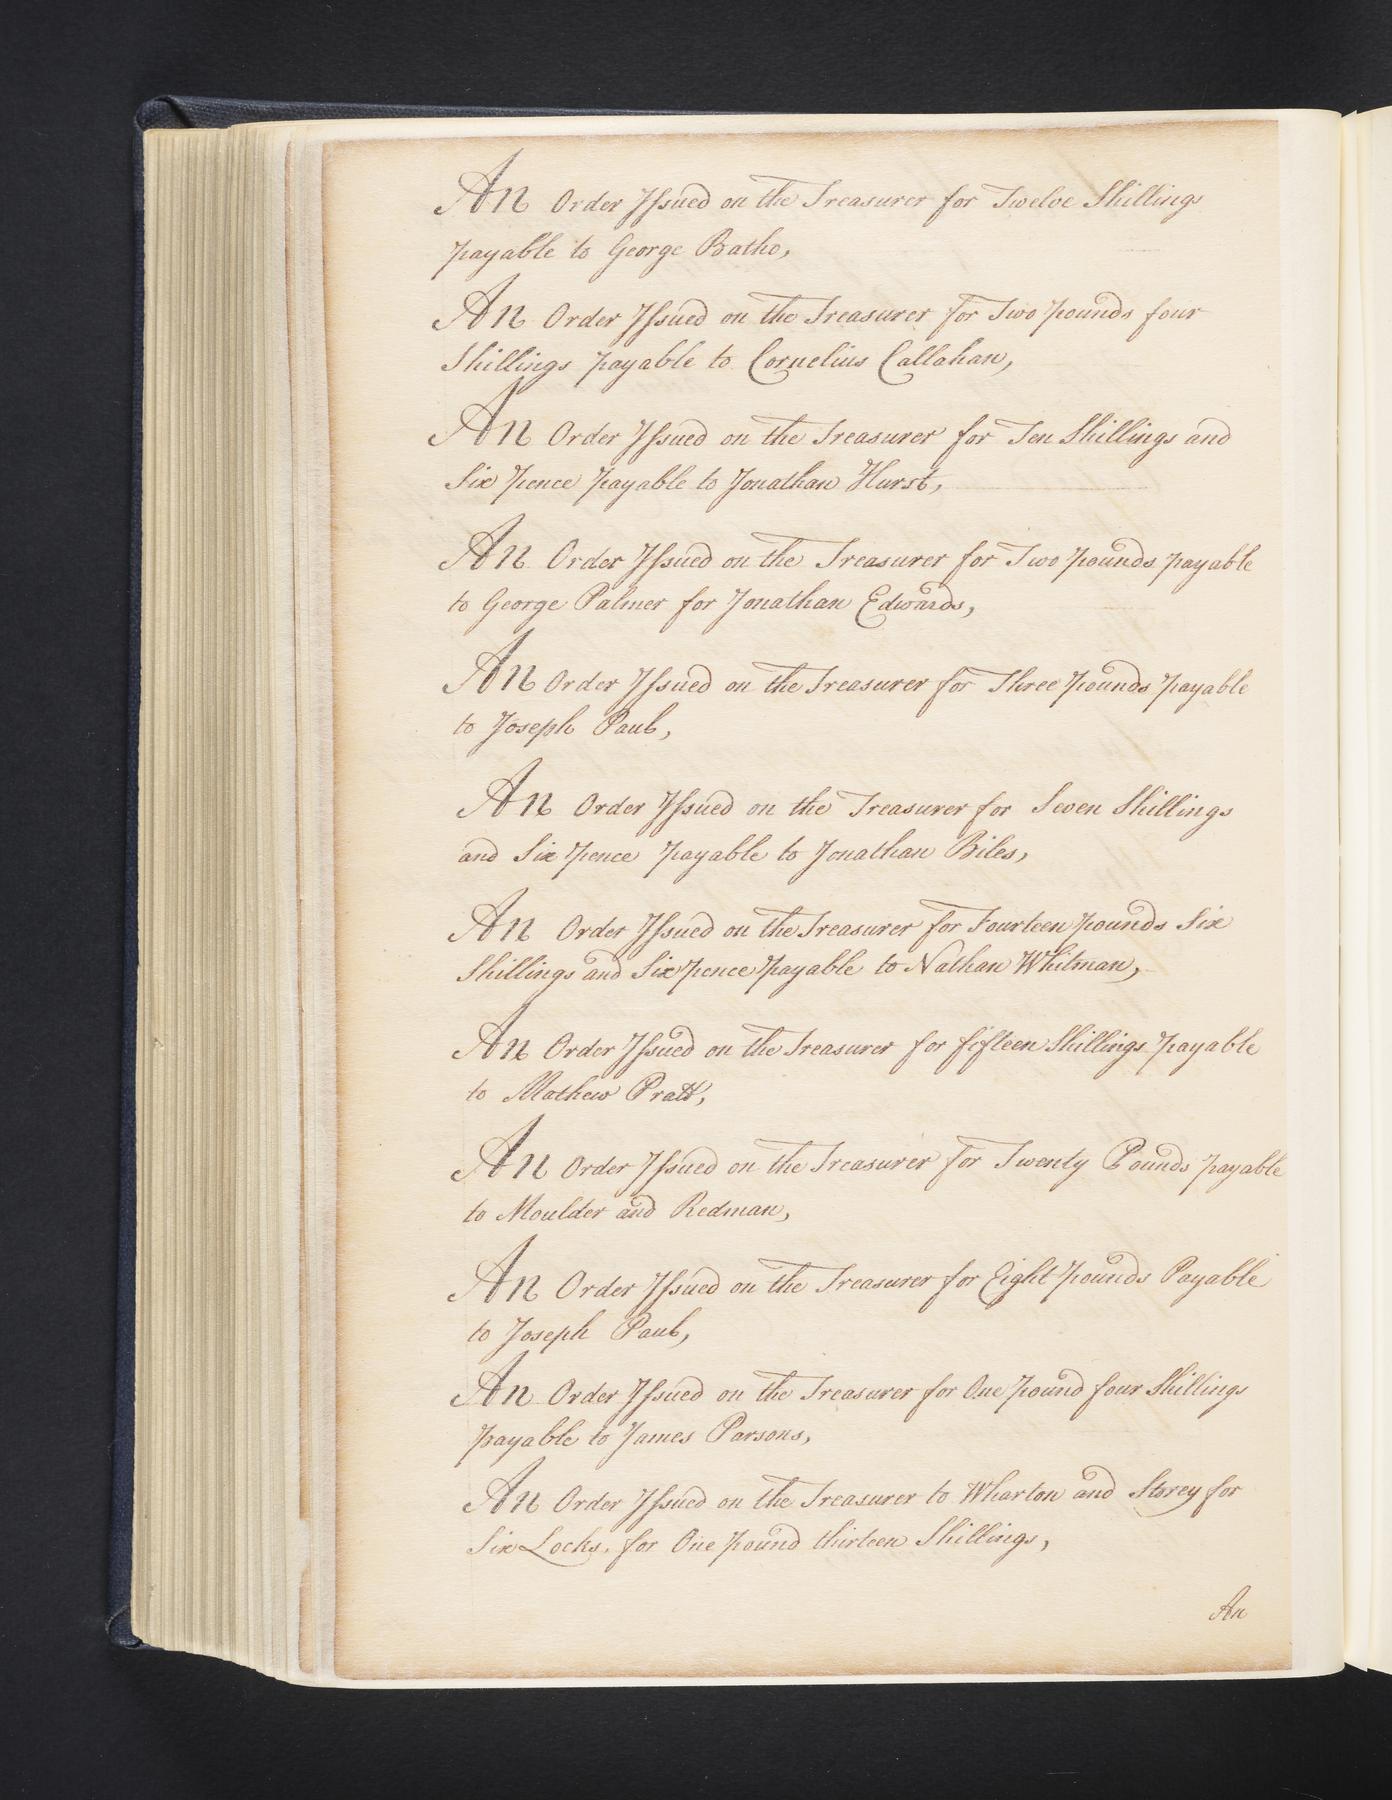 An Order Issued on the Treasurer for Twelve Shillings
payable to George Batho,
An Order Issued on the Treasurer for Two pounds four
Shillings payable to Cornelius Callahan,
An Order Issued on the Treasurer for Ten Shillings and
Six pence payable to Jonathan Hurst,
An Order Issued on the Treasurer for Two pounds payable
to George Palmer for Jonathan Edwards,
An Order Issued on the Treasurer for Three pounds payable
to Joseph Paul,
An Order Issued on the Treasurer for Seven Shillings
and Six pence payable to Jonathan Biles,
An Order Issued on the Treasurer for Fourteen pounds Six
Shillings and Six pence payable to Nathan Whitman,
An Order Issued on the Treasurer for fifteen Shillings payable
to Mathew Pratt,
An Order Issued on the Treasurer for Twenty Pounds payable
to Moulder and Redman,
An Order Issued on the Treasurer for Eight pounds Payable
to Joseph Paul,
An Order Issued on the Treasurer for One pound four Shillings
payable to James Parsons,
An Order Issued on the Treasurer to Wharton and Storey for
Six Locks, for One pound thirteen Shillings,
An